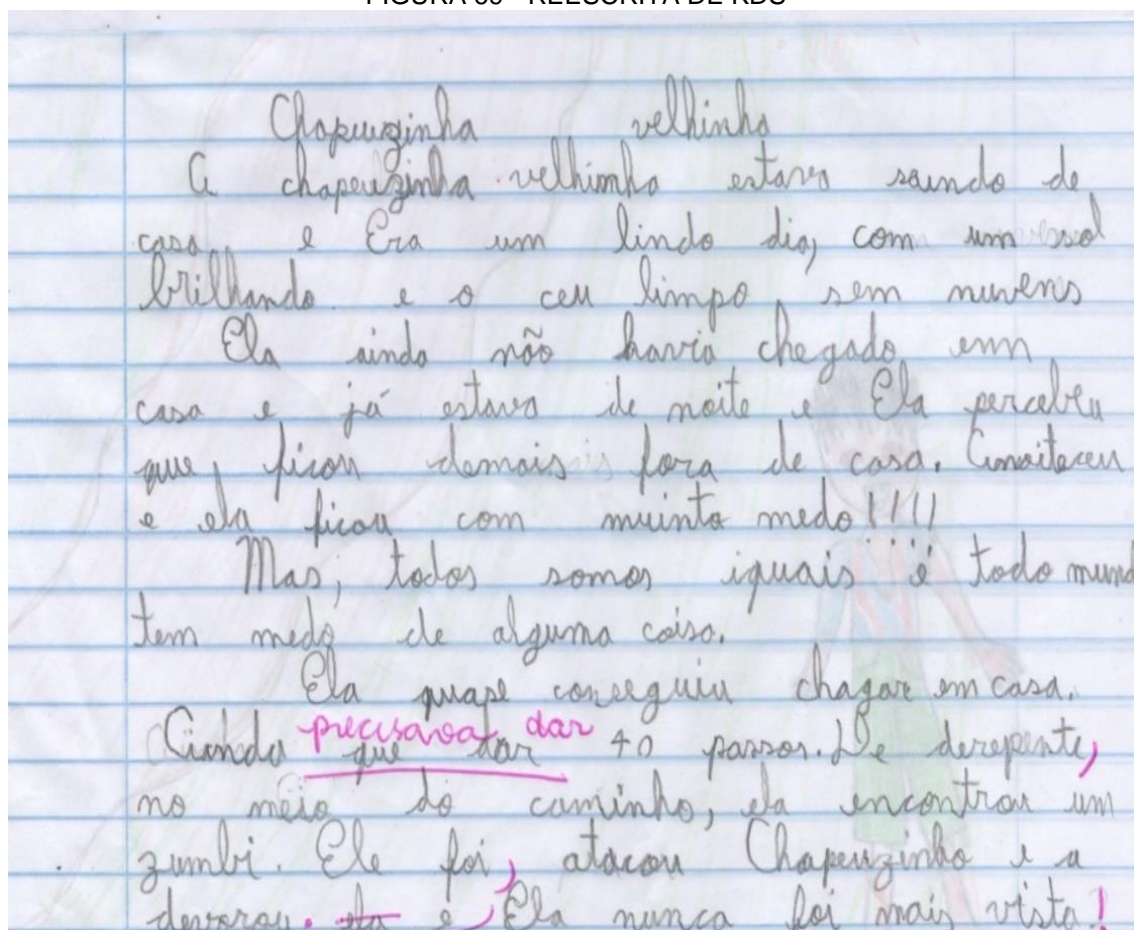 FIGURA 60 - REESCRITA DE RDS
Chapeuzinha velhinha
A chapeuzinha velhinha estava saindo de
casa e Era um lindo dia, com um sol
brilhando e o ceu limpo, sem nuvens
Ela ainda não havia chegado em
casa e já estava de noite e Ela percebeu
que, ficou demais fora de casa. Anoiteceu
e ela ficou com muinto medo!!!!
Mas, todos somos iguais e todo mund
tem medo de alguma coisa.
Ela quase conseguiu chagar em casa.
precisava dar
Ainda que dar 40 passos. De derepente,
no meio do caminho, ela encontrou um
zumbi. Ele foi, atacou Chapeuzinho e a
devorou. ela e, Ela nunca foi mais vista!